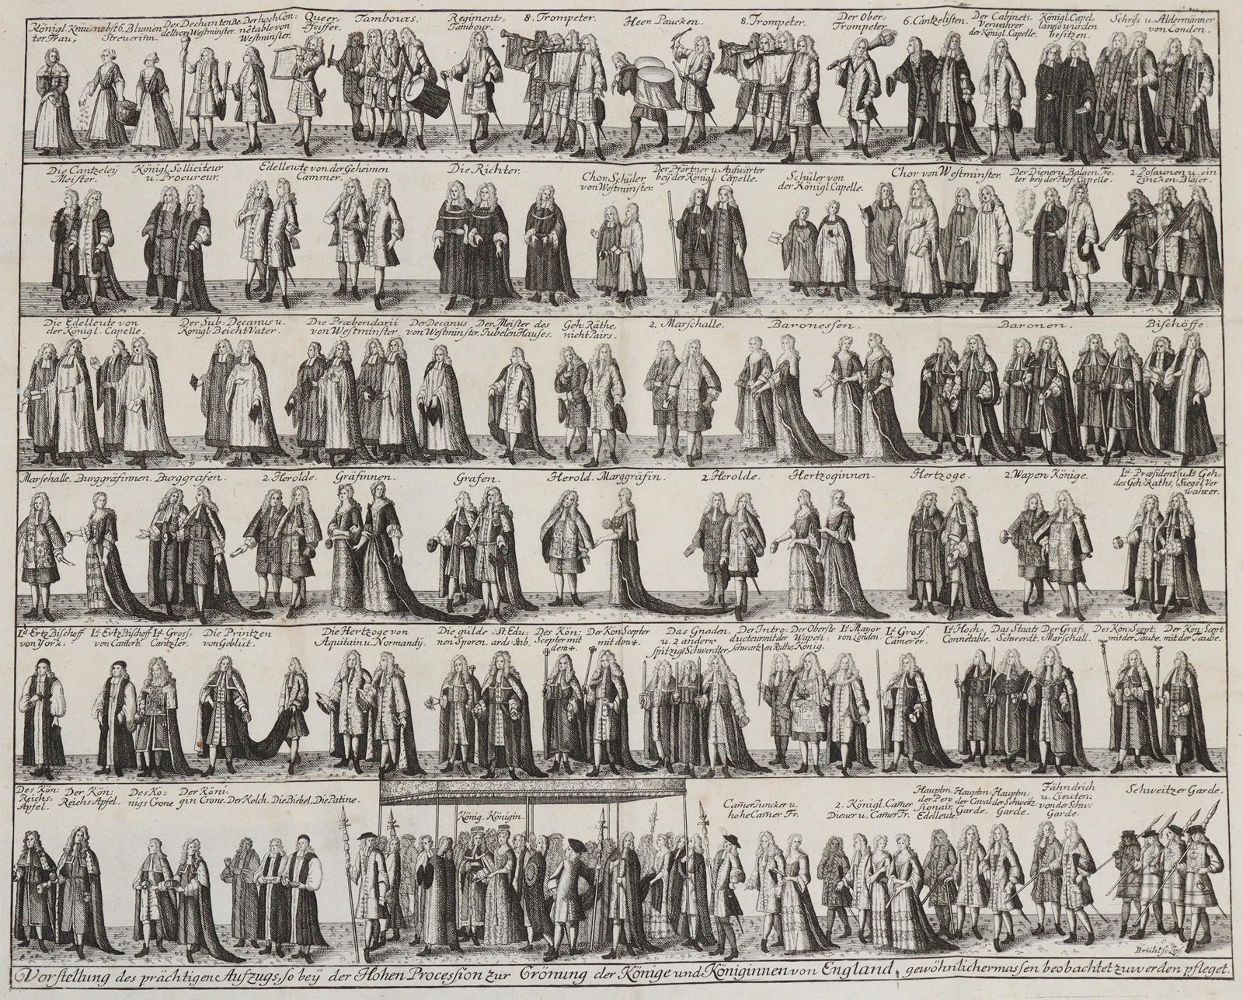 Königl. Kräu- nebst 6. Blumen
ter Frau, Streuerinn.
Des Dechanten Be-
dell von Westminster.
Der hoch Con-
netable von
Westminster.
Queer
Pfeiffer.
Tambours.
Regiments-
Tambour.
8. Trompeter.
Heer Paucken.
8. Trompeter.
Der Ober-
Trompeter.
6. Cantzelisten.
Der Cabinets
Verwahrer
der Königl. Capelle.
Königl. Capel-
besitzen.
u. Aldermänner
von Londen.
Die Cantzeley
Meister.
Königl. Solliciteur
u. Procureur.
Edelleute von der Geheimen
Cammer.
Die Richter.
Chor Schüler
von Westminster.
Der Pförtner u. Aufwärter
bey der Königl. Capelle.
Schüler von
der Königl. Capelle.
Chor von Westminster.
Der Diener u. Balgen Tre-
ter bey der Hof Capelle.
2. Posaunen u. ein
Zincken Bläser.
Die Edelleute von
der Königl. Capelle.
Der Sub-Decanus u.
Königl. Beicht Vater.
Die Præbendarii
von Westminster.
Der Decanus
von Westminster.
Der Meister des
Jubelen Hauses.
Geh. Räthe,
nicht Pairs.
2. Marschalle.
Baronessen.
Baronen.
Bischöffe
Marschalle. Burggräfinnen. Burggrafen.
2. Herolde.
Gräfinnen.
Grafen.
Herold. Marggräfin.
2. Herolde.
Hertzoginnen.
Hertzoge.
2. Wapen Könige.
Ld. Præsident u. Ld. Geh.
des Geh. Raths, Siegel Ver
wahrer.
Ld. Ertz Bischof
von York.
Ld. Ertz Bischoff
von Canterb.
Ld. Gross-
Cantzler.
Die Printzen
von Geblüt.
Die Hertzoge von
Aquitain u. Normandij.
Die gulde-
nen Sporen.
St. Edu-
ards Stab.
Der Kön:
Scepter mit
dem +.
Der Kön. Scepter
mit dem +.
Das Gnaden,
u. 2 andere
spitzige Schwerdter.
Der Intro-
ducteur mit der
schwartzen Ruthe.
Der Oberste
Wapen-
König.
Ld. Mayor
von London.
Ld. Gross
Camerer.
Ld. Hoch-
Connetable.
Das Staats
Schwerdt.
Der Graf
Marschall.
Des Kön. Scept.
mit der Taube.
Der Kön. Scept.
mit der Taube.
Des Kön:
Reichs-
Apfel.
Der Kön:
Reichs Apfel.
Des Kö-
nigs Crone
Der Köni-
gin Crone.
Der Kelch. Die Biebel. Die Patine.
König. Königin.
Camer Juncker u.
hohe Camer Fr.
2. Königl. Camer
Diener u. Camer Fr.
Hauptm.
der Pen-
sionair
Edelleute
Hauptm:
der Caval.
Garde.
Hauptm:
der Schweitz
Garde.
Fähndrich
u. Lieuten:
von der Schw:
Garde.
Schweitzer Garde.
Brühl sc. Lips.
Vorstellung des prächtigen Aufzugs, so bey der Hohen Procession zur Crönung der Könige und Königinnen von England, gewöhnlichermassen beobachtet zu werden pfleget.